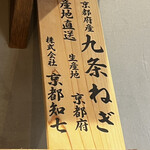 京都府産 九条ねぎ
産地直送
生産地 京都府
株式会社 京都知七